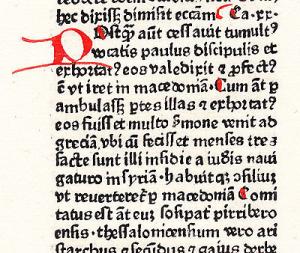 hec dixisset dimisit ecclam Ca. xx.
POstq̄ aūt cessavit tumult⁹
vocatis paulus discipulis et
exhortat⁹ eos valedixit ⁊ ꝓfect⁹
ē vt iret in macedoniā Cum āt p
ambulass᷒ ptes illas ⁊ exhortat⁹
eos fuiss᷒ et multo ẜmone venit ad
greciā, vbi cū fecisset menses tres
facte sunt illi insidie a iudeis navi
gaturo in syriā ⁊ habuit qꝫ ↄsiliuꝫ
vt reverteret᷑ p macedoniā Comi
tatus est āt euꝫ sosipat᷑ pirri beroe
ensis ⁊ thessalonicensium vero ari
starchus ⁊ secūdus ⁊ gaius derbe